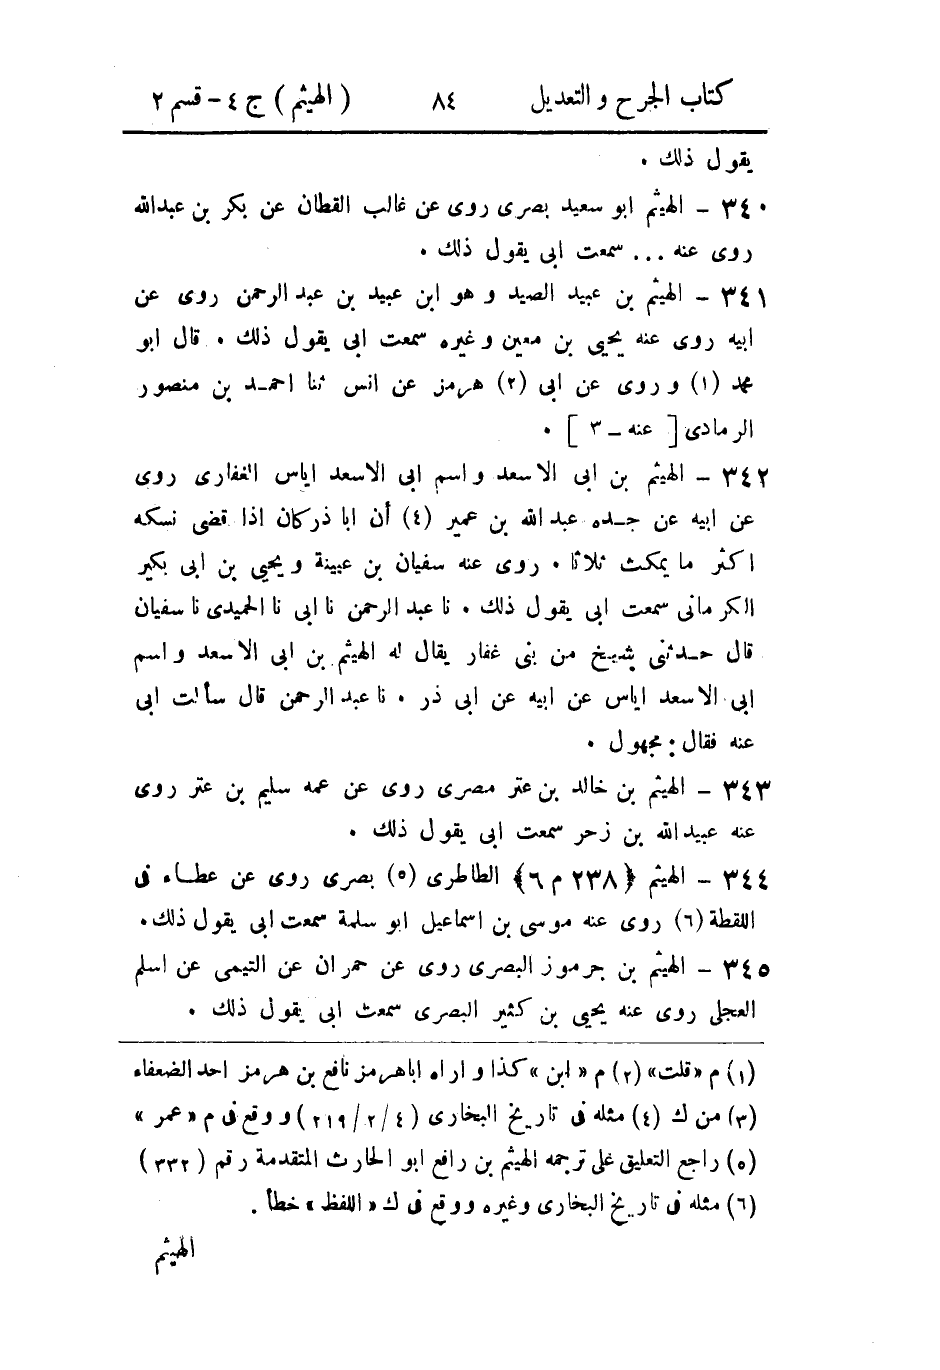 كتاب الجرح والتعديل ٨٤ (الهيثم) ج ٤ - قسم ٢
يقول ذلك .
٣٤٠ - الهيثم ابو سعيد بصرى روى عن غالب القطان عن بكر بن عبدالله
روى عنه ... سمعت ابى يقول ذلك .
٣٤١ - الهيثم بن عبيد الصيد وهو ابن عبيد بن عبد الرحمن روى عن
ابيه روى عنه يحيى بن معين وغيره سمعت ابى يقول ذلك . قال ابو
محمد (١) وروى عن ابى (٢) هرمز عن انس ثنا احمد بن منصور
الرمادى [ عنه - ٣ ] .
٣٤٢ - الهيثم بن ابى الاسعد واسم ابى الاسعد اياس الغفارى روى
عن ابيه عن جده عبد الله بن عمير (٤) أن ابا ذر كان اذا قضى نسكه
اكثر ما يمكث ثلاثا . روى عنه سفيان بن عيينة ويحيى بن ابى بكير
الكرمانى سمعت ابى يقول ذلك . نا عبد الرحمن نا ابى نا الحميدى نا سفيان
قال حدثنى شيخ من بنى غفار يقال له الهيثم بن ابى الاسعد واسم
ابى الاسعد اياس عن ابيه عن ابى ذر . نا عبد الرحمن قال سألت ابى
عنه فقال : مجهول .
٣٤٣ - الهيثم بن خالد بن عتر مصرى روى عن عمه سليم بن عتر روى
عنه عبيد الله بن زحر سمعت ابى يقول ذلك .
٣٤٤ - الهيثم ﴿٢٣٨ م ٦﴾ الطاطرى (٥) بصرى روى عن عطاء فى
اللقطة (٦) روى عنه موسى بن اسماعيل ابو سلمة سمعت ابى يقول ذلك .
٣٤٥ - الهيثم بن جرموز البصرى روى عن حمران عن التيمى عن اسلم
العجلى روى عنه يحيى بن كثير البصرى سمعت ابى يقول ذلك .
(١) م «قلت» (٢) م «ابن» كذا واراه اباهرمز نافع بن هرمز احد الضعفاء
(٣) من ك (٤) مثله فى تاريخ البخارى (٤/٢/٢١٩) ووقع فى م «عمر»
(٥) راجع التعليق على ترجمه الهيثم بن رافع ابو الحارث المتقدمة رقم (٣٣٢)
(٦) مثله فى تاريخ البخارى وغيره ووقع فى ك «اللفظ» خطأ .
الهيثم